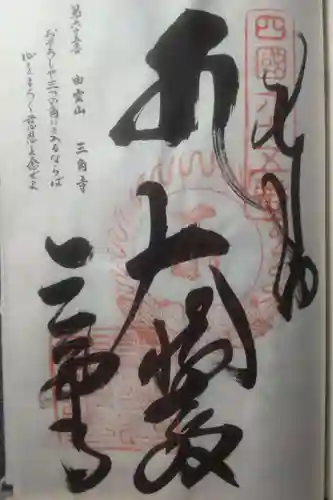 四國六十五番
奉納
三角寺
第六十五番　由霊山　三角寺
おそろしや三つの角にも入るならば
心をまろく慈悲を念ぜよ